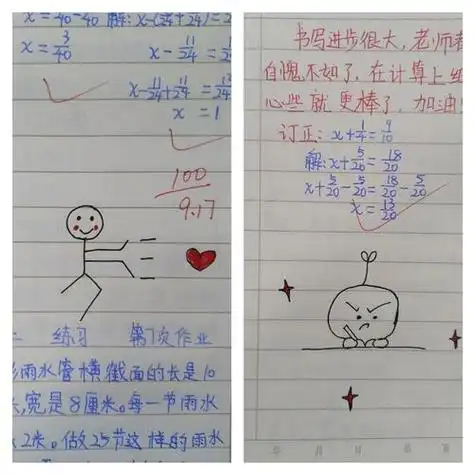 x = 40-40 解: x-(24+24)=2
x = 3/40
x - 11/24 = 1/2
x - 11/24 + 11/24 = 13/24
x = 1
100
9.17
练习 第7页作业
雨水管横截面的长是10
宽是8厘米。每一节雨水
2米。做25节这样的雨水
书写进步很大,老师都
自愧不如了,在计算上细
心些就更棒了,加油!
订正: x+1/4=9/10
解: x+5/20=18/20
x+5/20-5/20=18/20-5/20
x=13/20
年 月 日